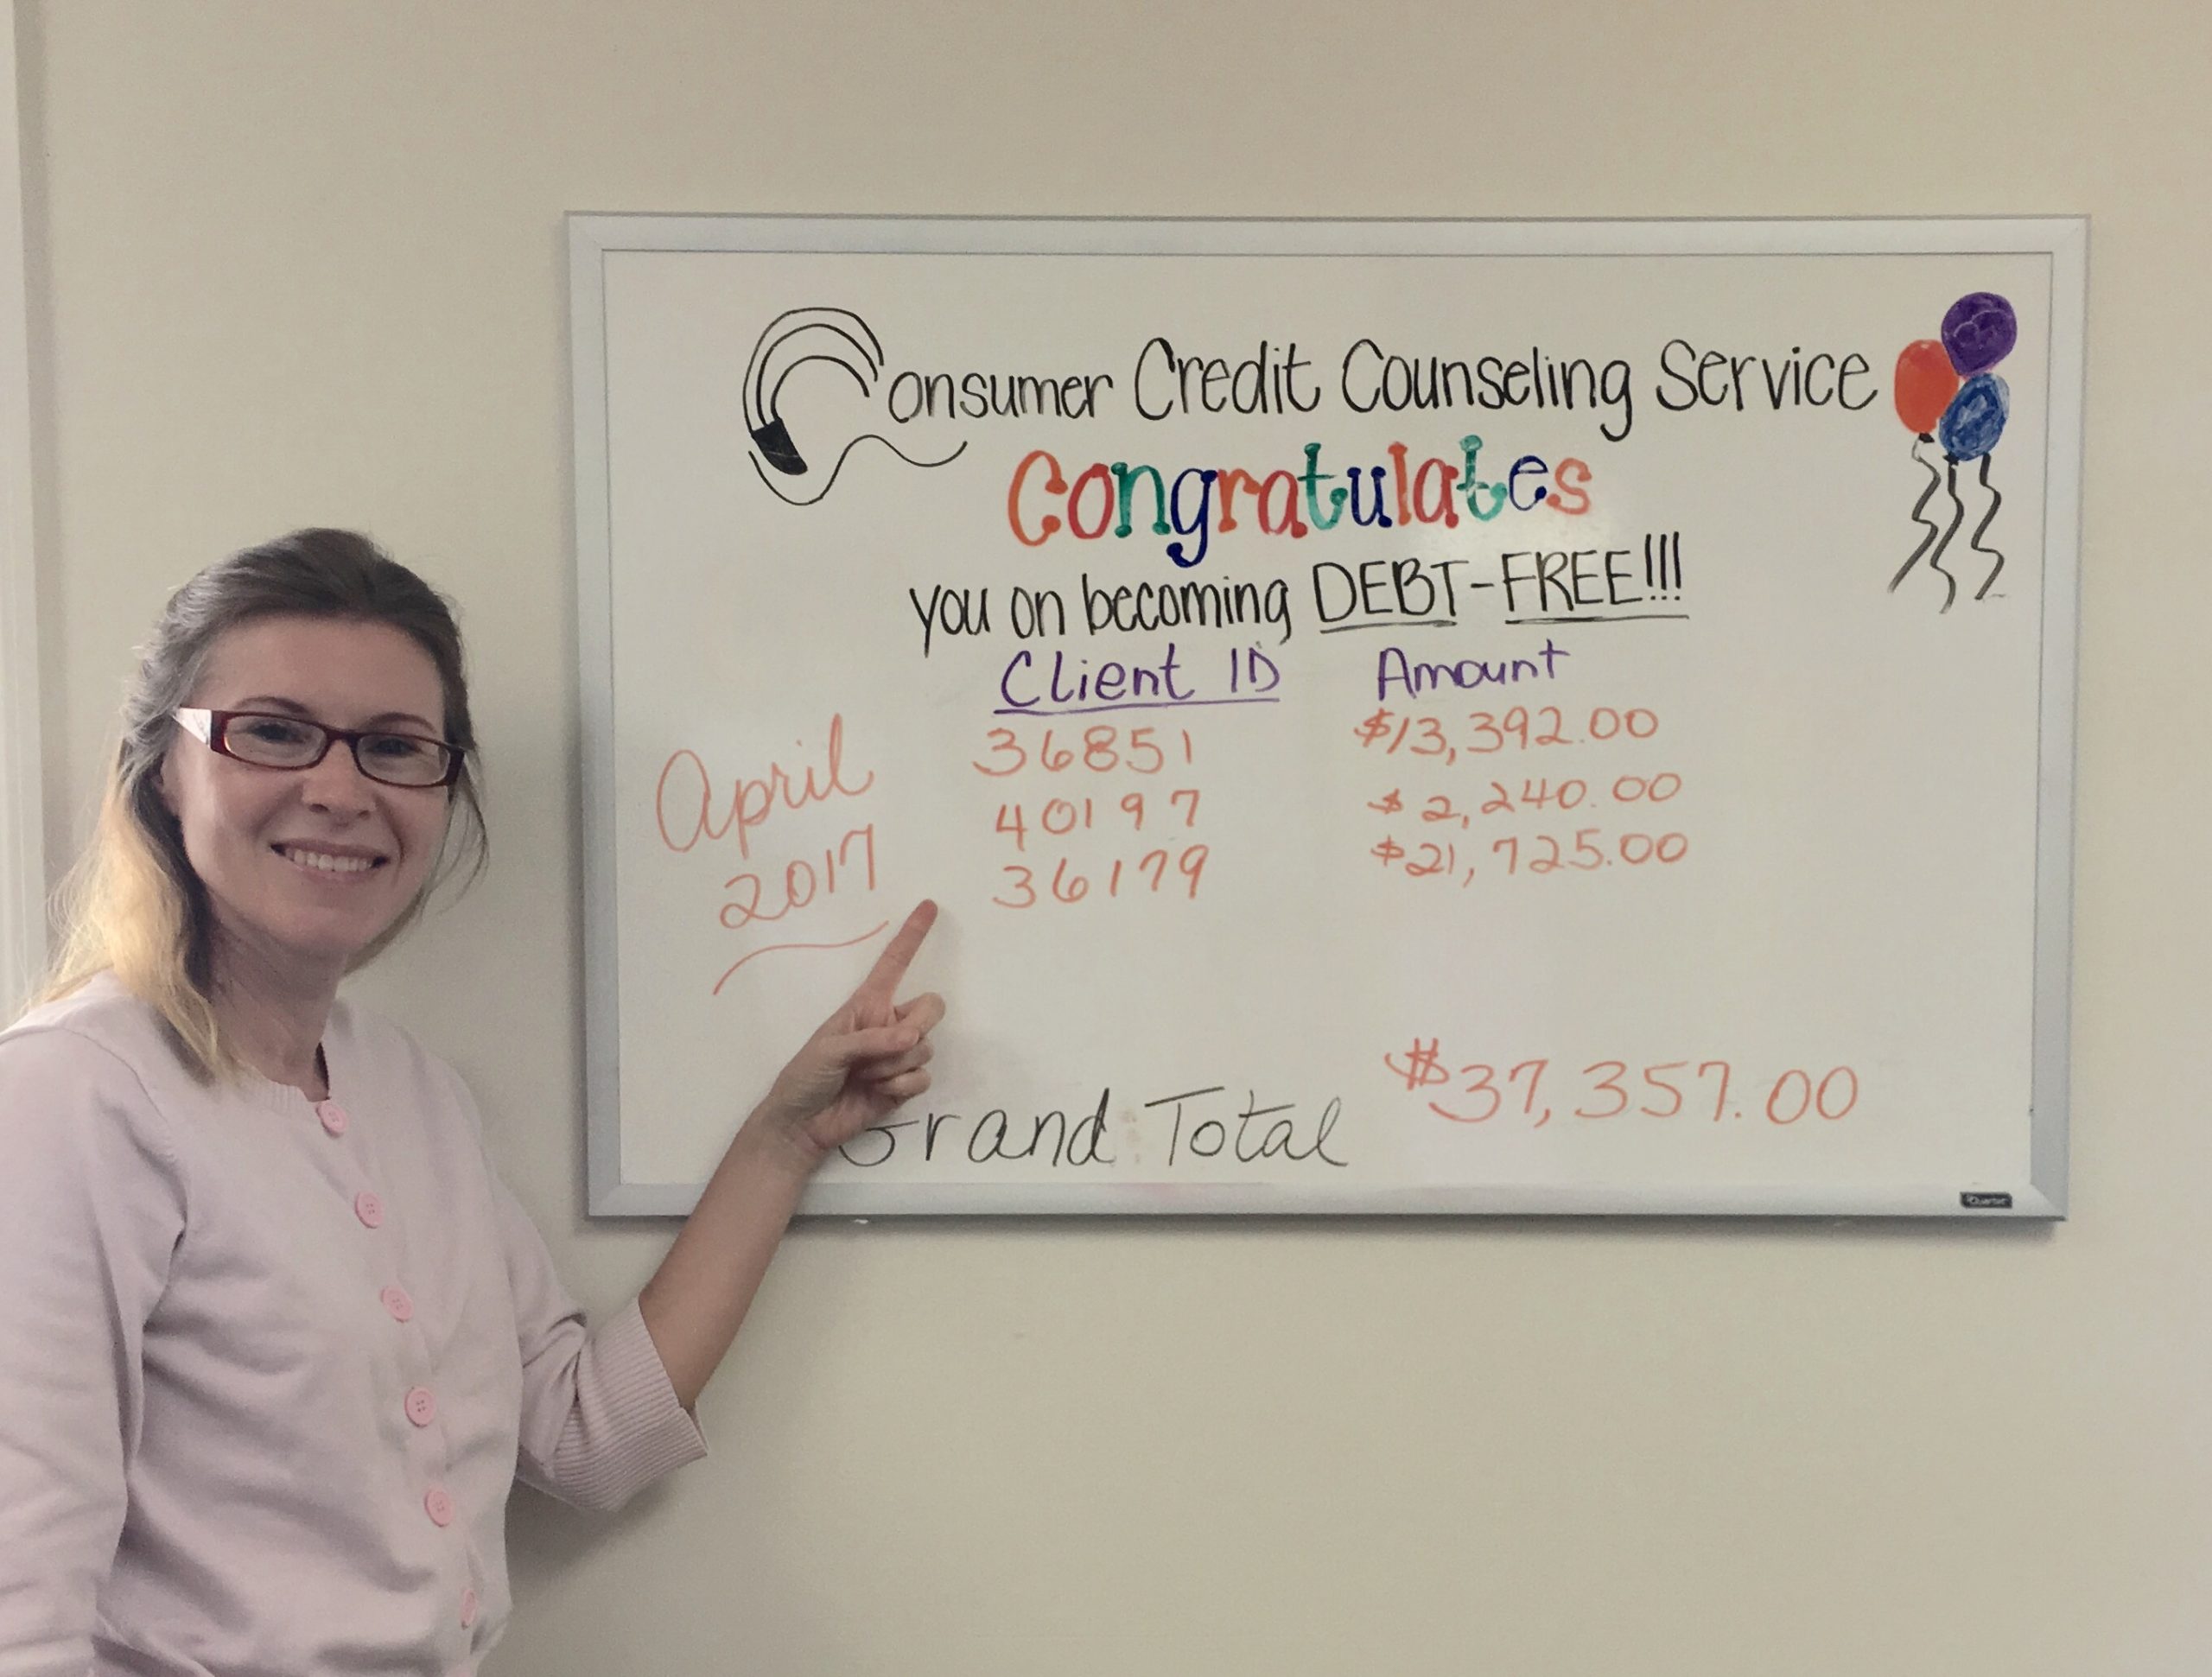 Consumer Credit Counseling Service
Congratulates
you on becoming DEBT-FREE!!!
Client ID Amount
April 2017
36851 $13,392.00
40197 $2,240.00
36179 $21,725.00
Grand Total $37,357.00
Quartet